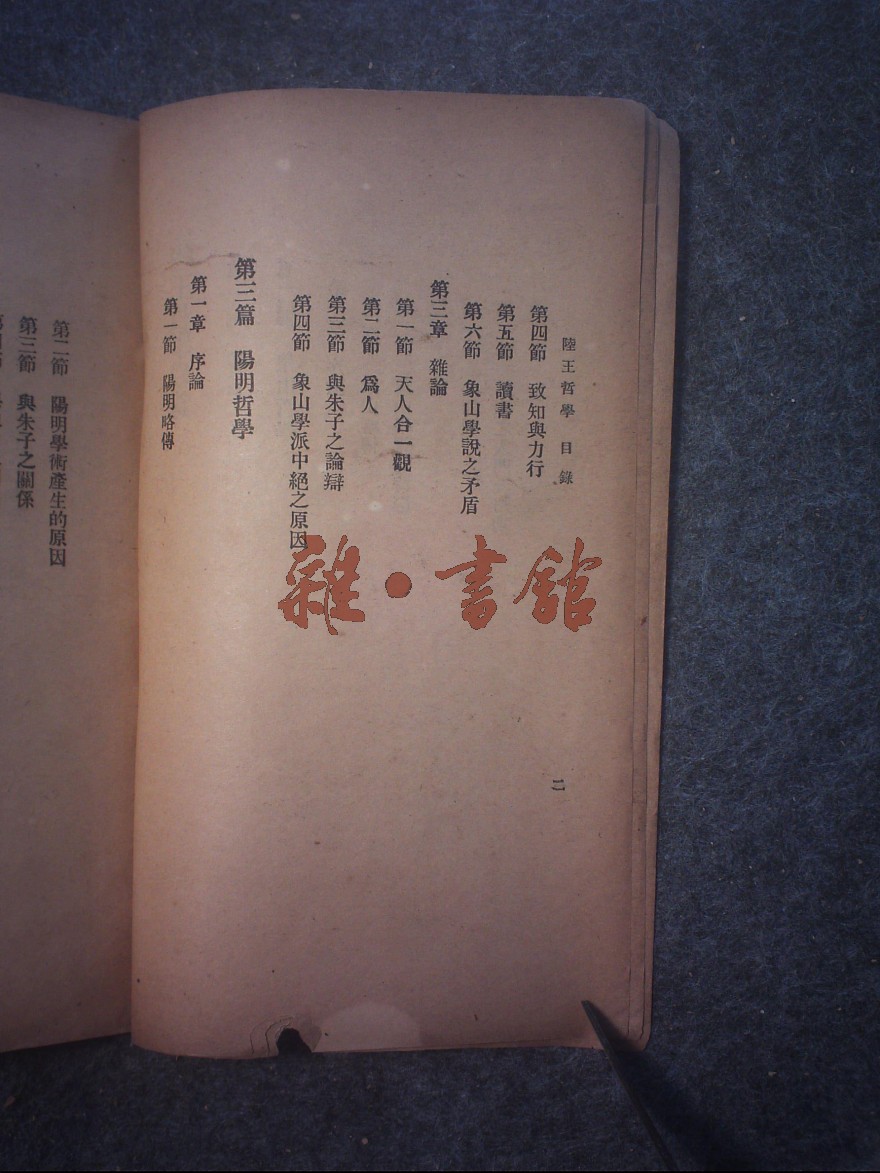 陸王哲學 目錄
第四節 致知與力行
第五節 讀書
第六節 象山學說之矛盾
第三章 雜論
第一節 天人合一觀
第二節 爲人
第三節 與朱子之論辯
第四節 象山學派中絕之原因
第三篇 陽明哲學
第一章 序論
第一節 陽明略傳
二
第二節 陽明學術產生的原因
第三節 與朱子之關係
雜·書館